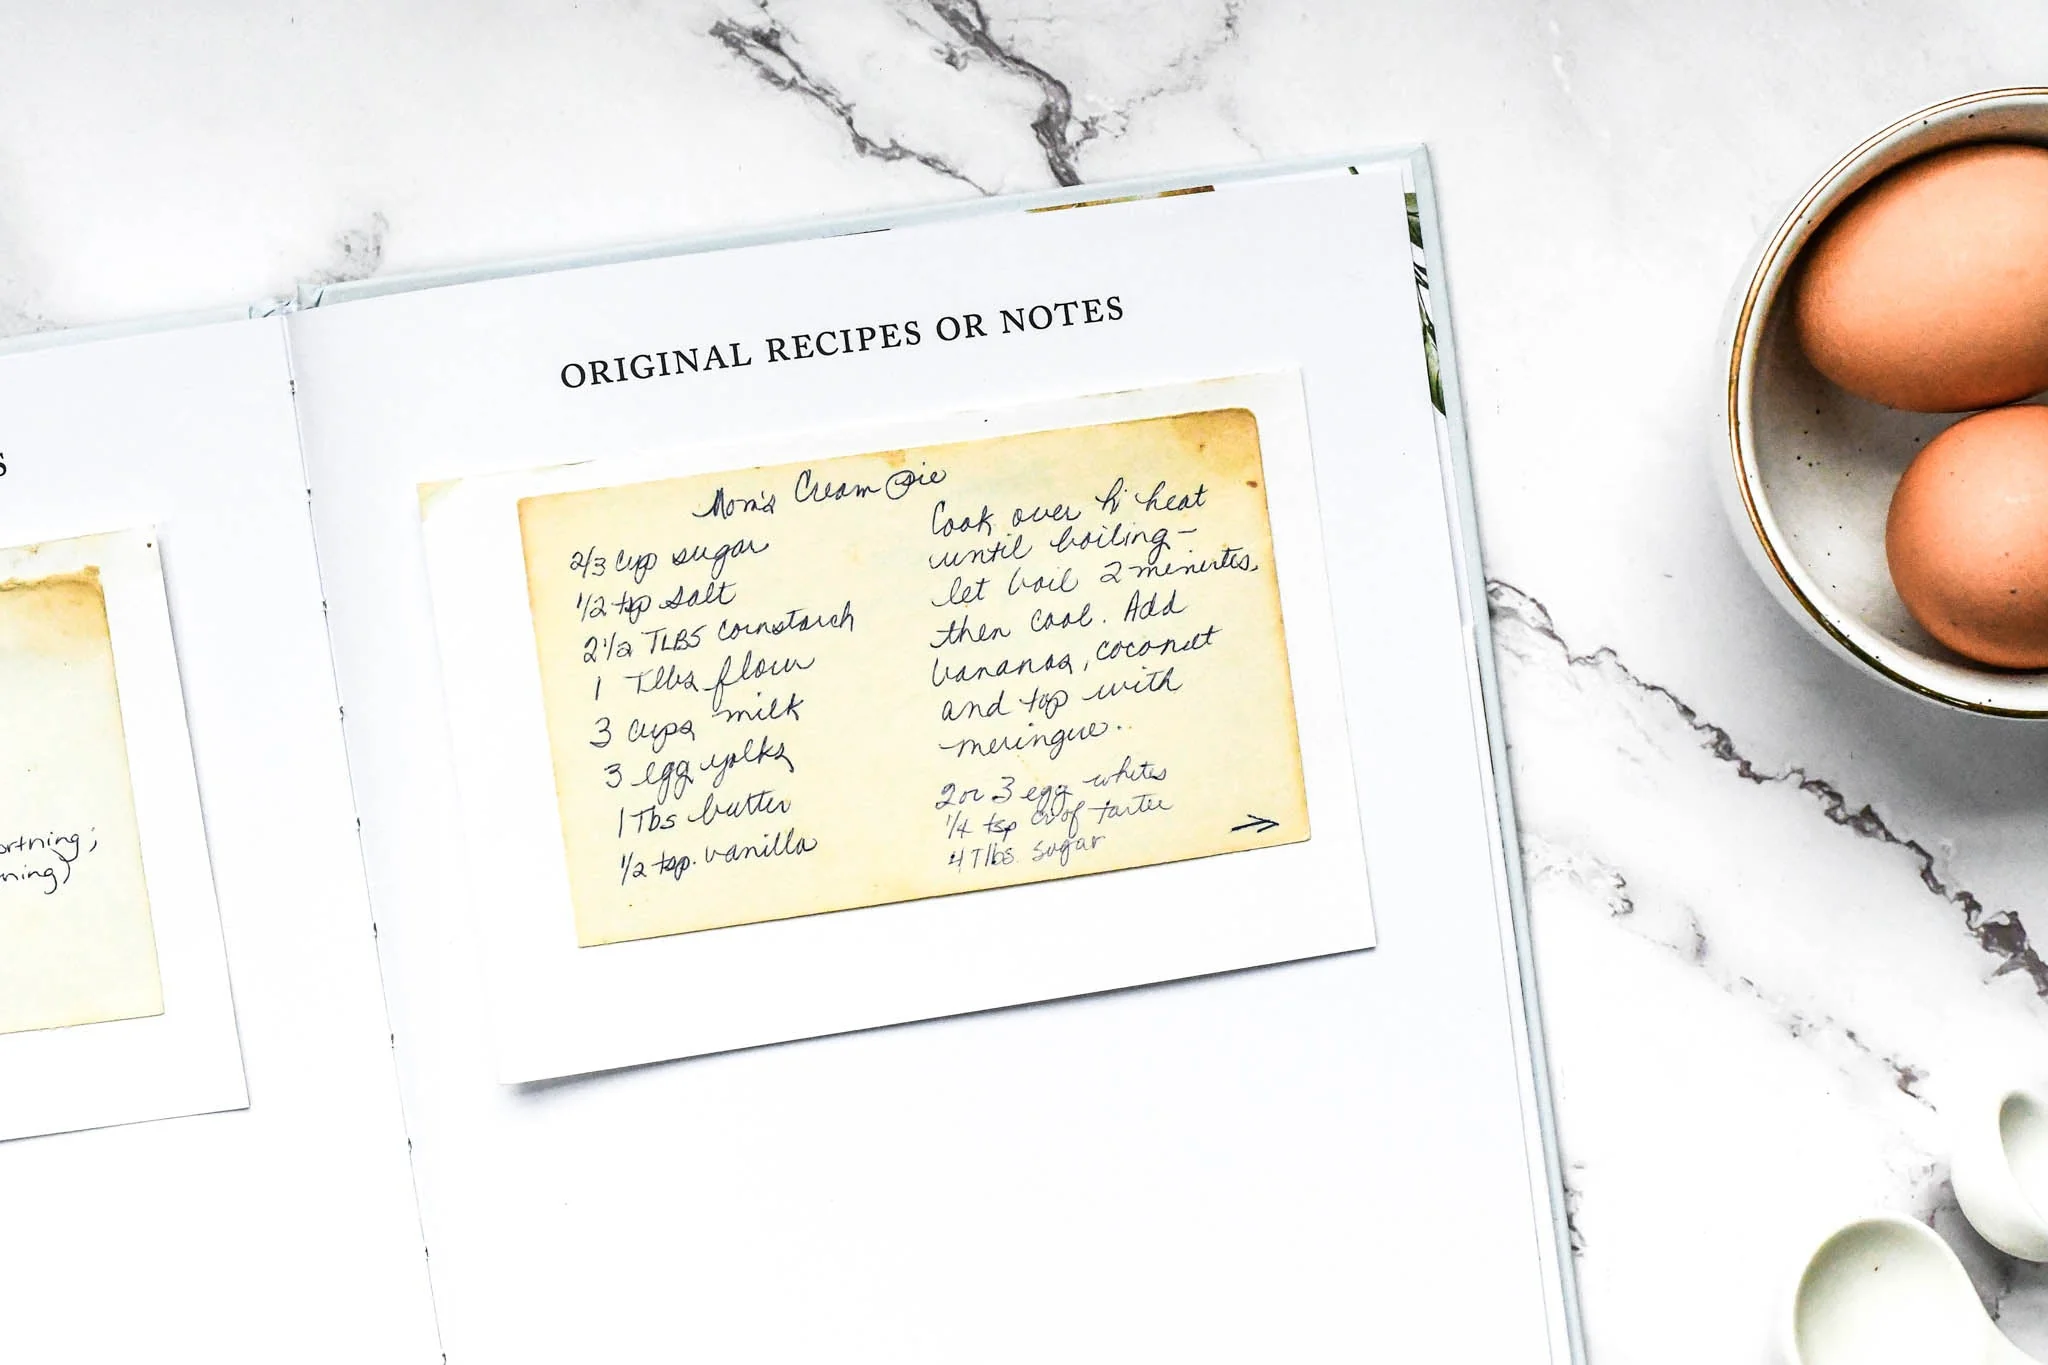 S
ortning;
ning)
ORIGINAL RECIPES OR NOTES
Mom's Cream Pie
2/3 cup sugar
1/2 tsp salt
2 1/2 TLBS cornstarch
1 Tlbs flour
3 cups milk
3 egg yolks
1 Tbs butter
1/2 tsp. vanilla
Cook over hi heat
until boiling —
let boil 2 minutes,
then cool. Add
bananas, coconut
and top with
meringue..
2 or 3 egg whites
1/4 tsp cr of tarter
4 Tlbs. sugar